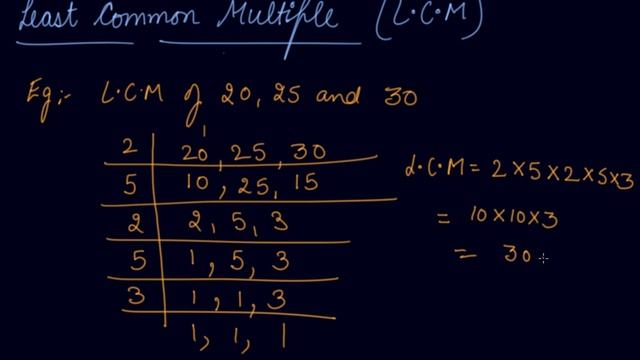 Least Common Multiple (L.C.M)
Eg:- L.C.M of 20, 25 and 30
2 20, 25, 30
5 10, 25, 15
2 2, 5, 3
5 1, 5, 3
3 1, 1, 3
1, 1, 1
L.C.M = 2×5×2×5×3
= 10×10×3
= 30